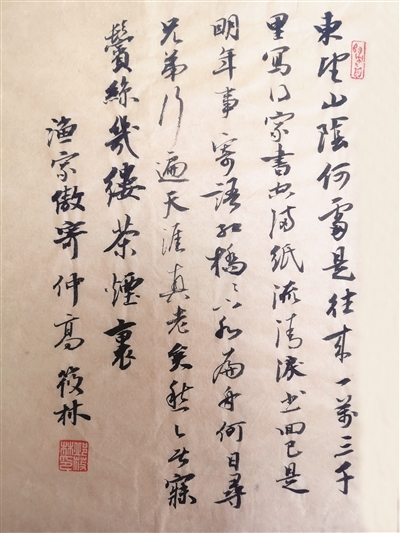 東望山陰何處是往來一萬三千
里寫得家書空滿紙流清淚書回已是
明年事寄語紅橋〻下水扁舟何日尋
兄弟行遍天涯真老矣愁無寐
鬢絲幾縷茶煙裏
漁家傲寄仲高 筱林